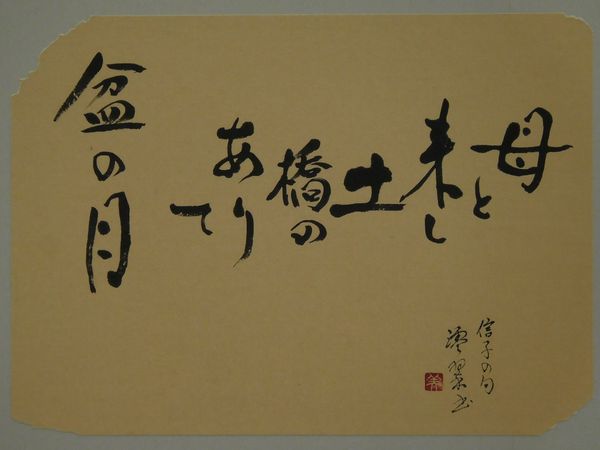 母と
来し
土
橋の
あり
て
盆の月
信子の句
翠書